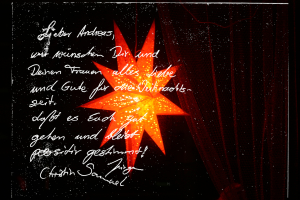 Lieber Andreas,
wir wünschen Dir und
Deinen Frauen alles Liebe
und Gute für die Weihnachts-
zeit.
Laßt es Euch gut
gehen und bleibt
positiv gestimmt!
Christin Samuel